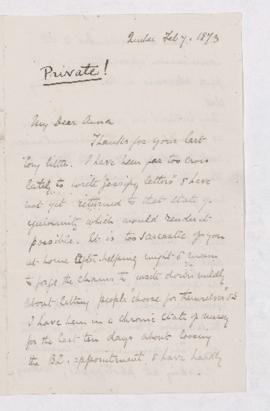 Quebec Feb 7. 1873
Private!
My Dear Anna
Thanks for your last
long letter. I have been far too cross
lately to write "gossipy letters" & have
not yet returned to that state of
equanimity which would render it
possible. It is too sarcastic of you
at home after helping might & main
to forge the chains to write down mildly
about letting people "choose for themselves" &c
I have been in a chronic state of misery
for the last ten days about
the B.C. appointment & have hardly